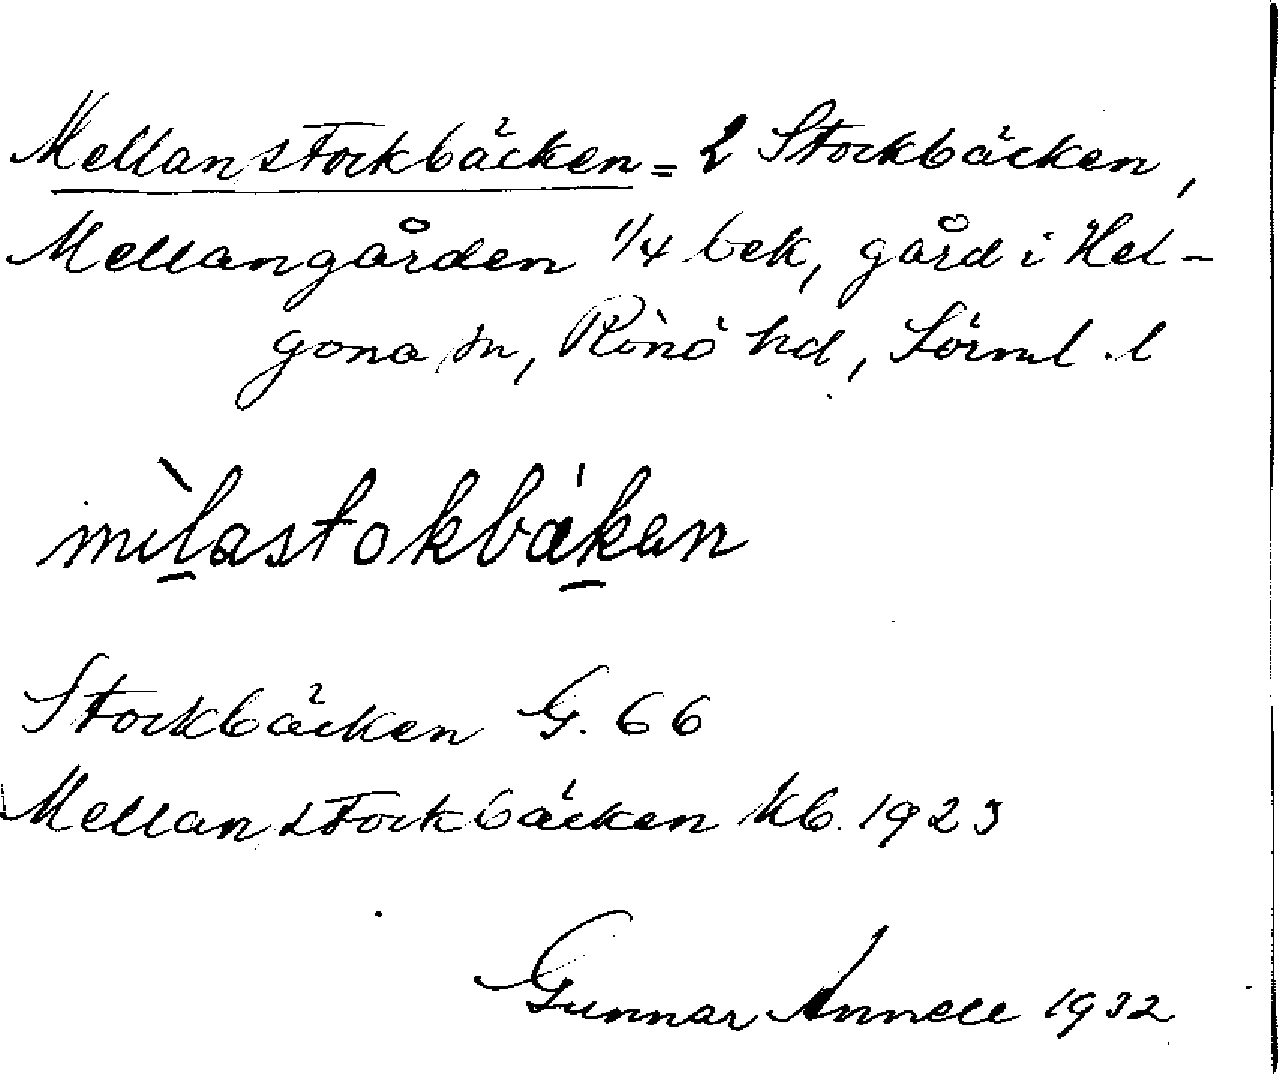 Mellanstockbäcken = 2 Stockbäcken,
Mellangården 1/4 bek, gård i Hel-
gona sn, Rönö hd, Sörml l
mìlastokbákan
Stockbäcken G. 66
Mellanstockbäcken kb. 1923
Gunnar Annell 1932